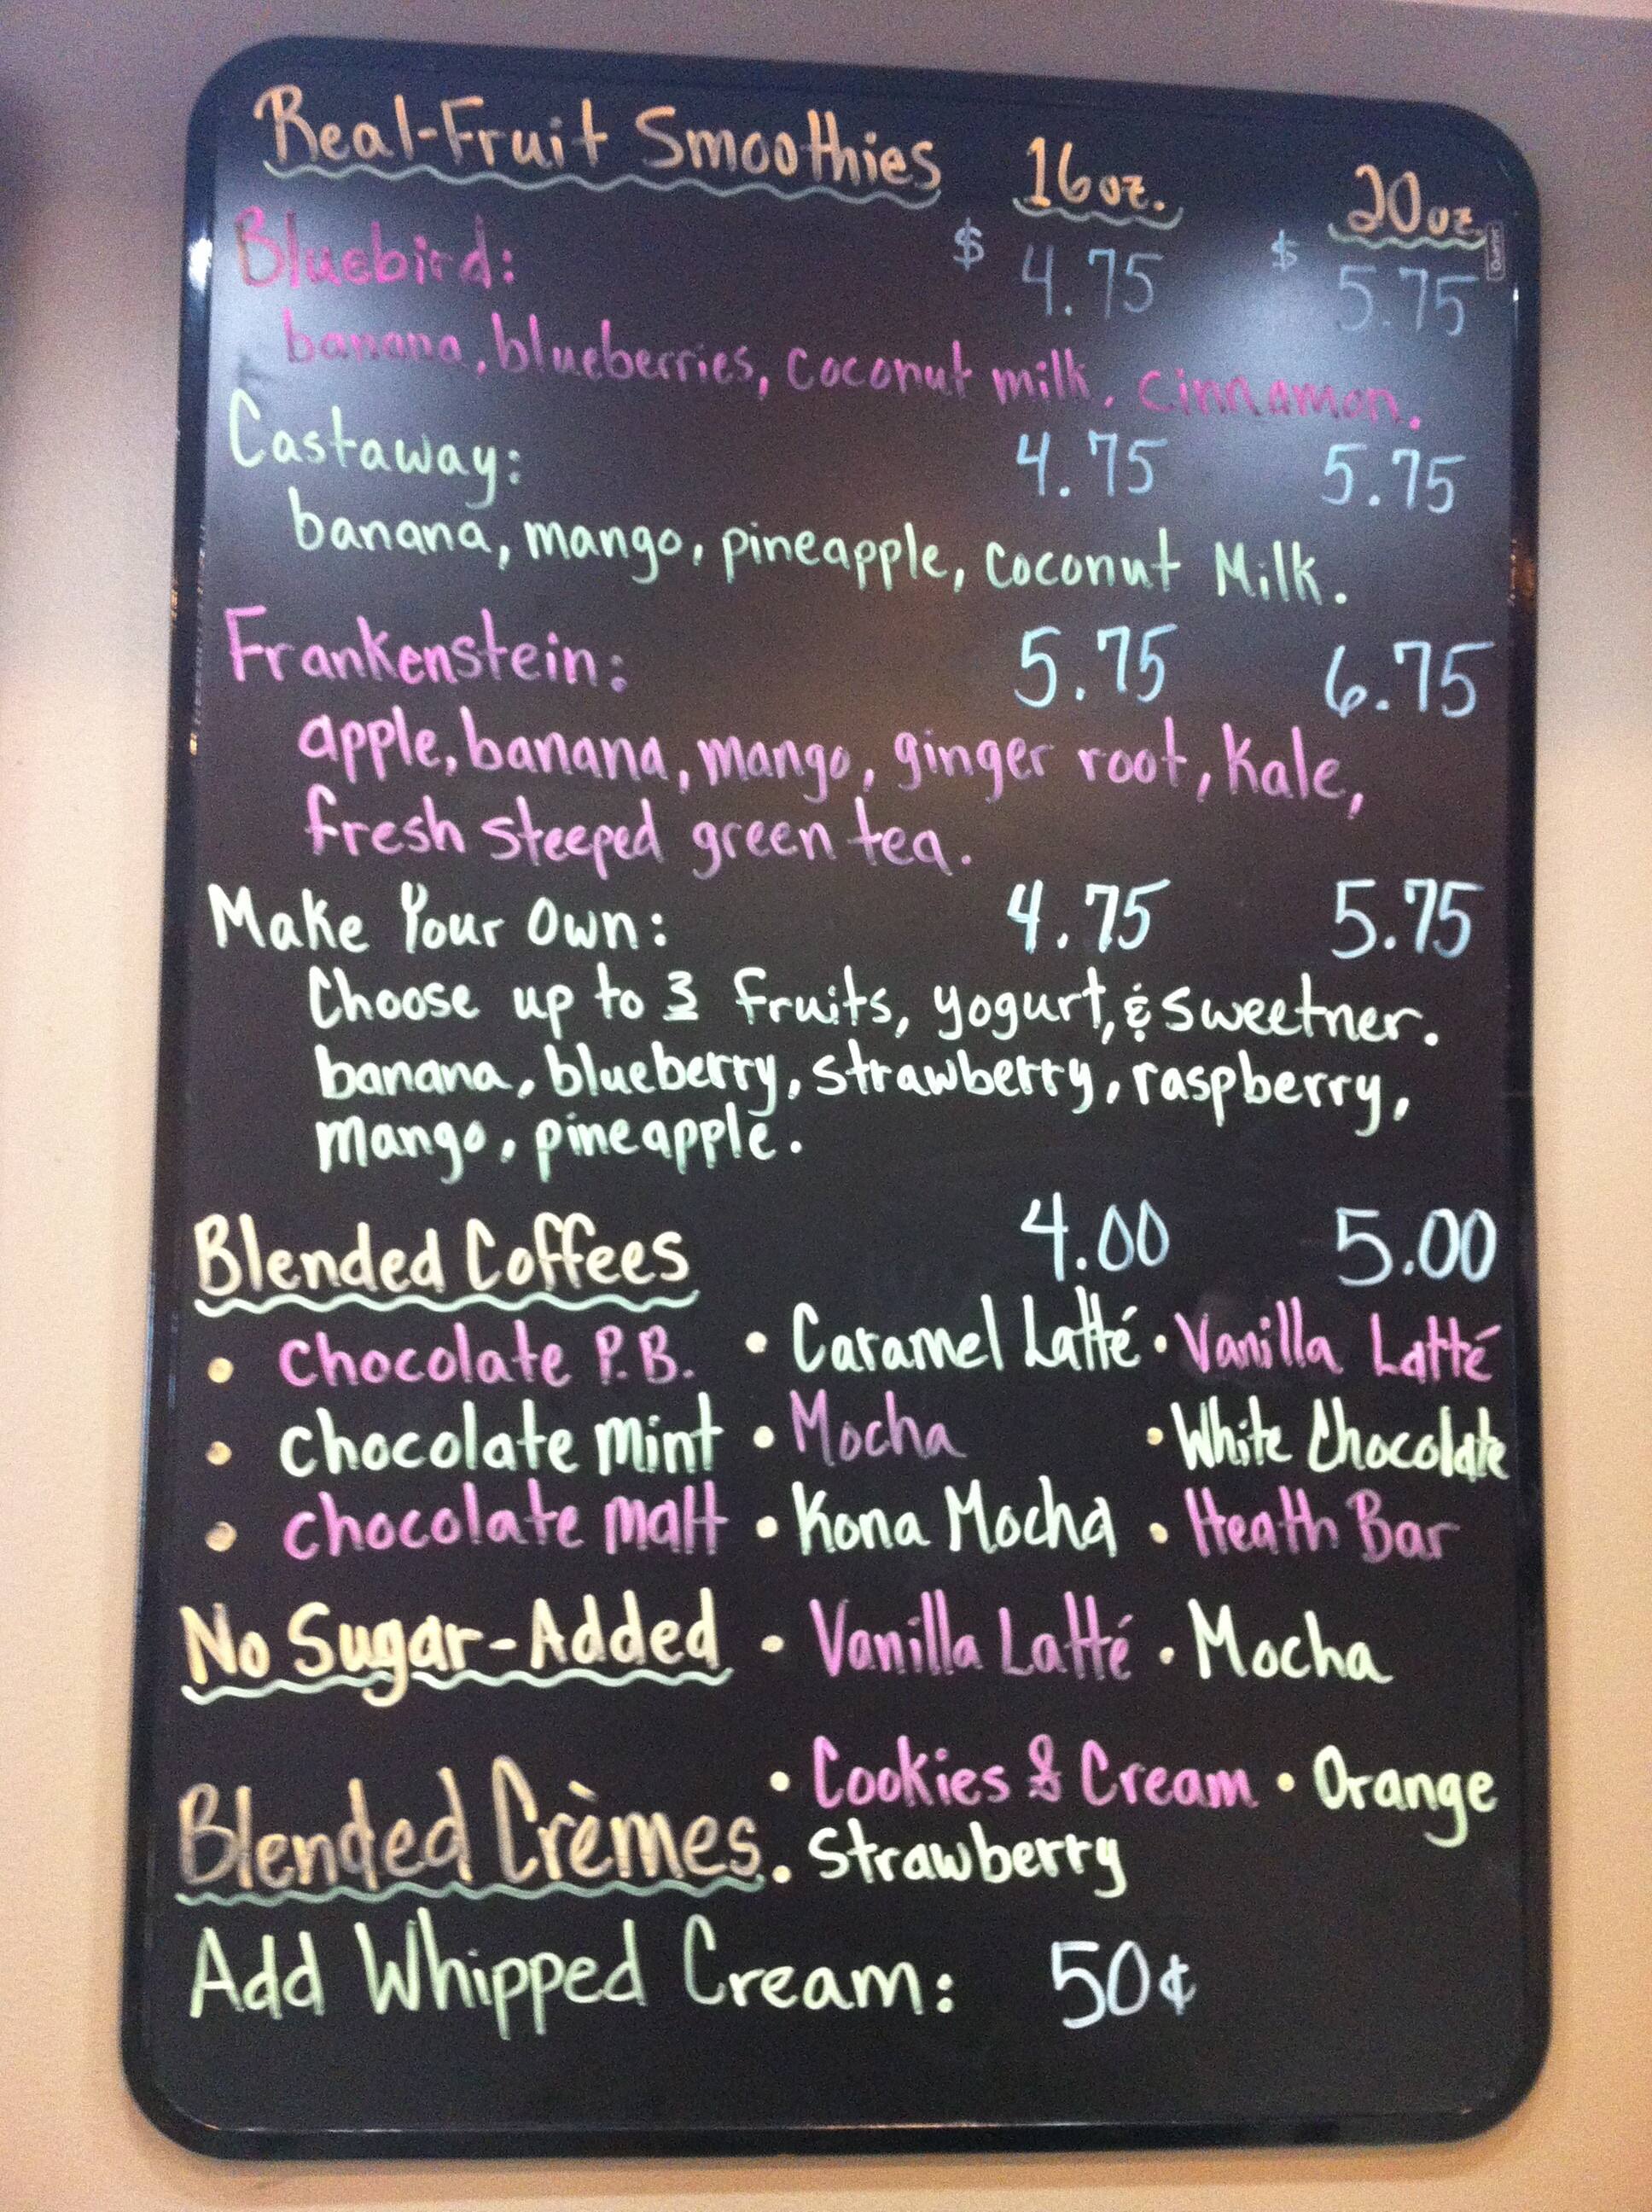 Real-Fruit Smoothies 16oz. 20oz.
Bluebird: $ 4.75 $ 5.75
banana, blueberries, coconut milk, cinnamon.
Castaway: 4.75 5.75
banana, mango, pineapple, coconut Milk.
Frankenstein: 5.75 6.75
apple, banana, mango, ginger root, kale,
fresh steeped green tea.
Make Your Own: 4.75 5.75
Choose up to 3 fruits, yogurt, & sweetner.
banana, blueberry, strawberry, raspberry,
mango, pineapple.
Blended Coffees 4.00 5.00
• Chocolate P.B. • Caramel Latté • Vanilla Latté
• Chocolate mint • Mocha • White Chocolate
• chocolate malt • Kona Mocha • Heath Bar
No Sugar-Added • Vanilla Latté • Mocha
• Cookies & Cream • Orange
Blended Crèmes • Strawberry
Add Whipped Cream: 50¢
Quartet